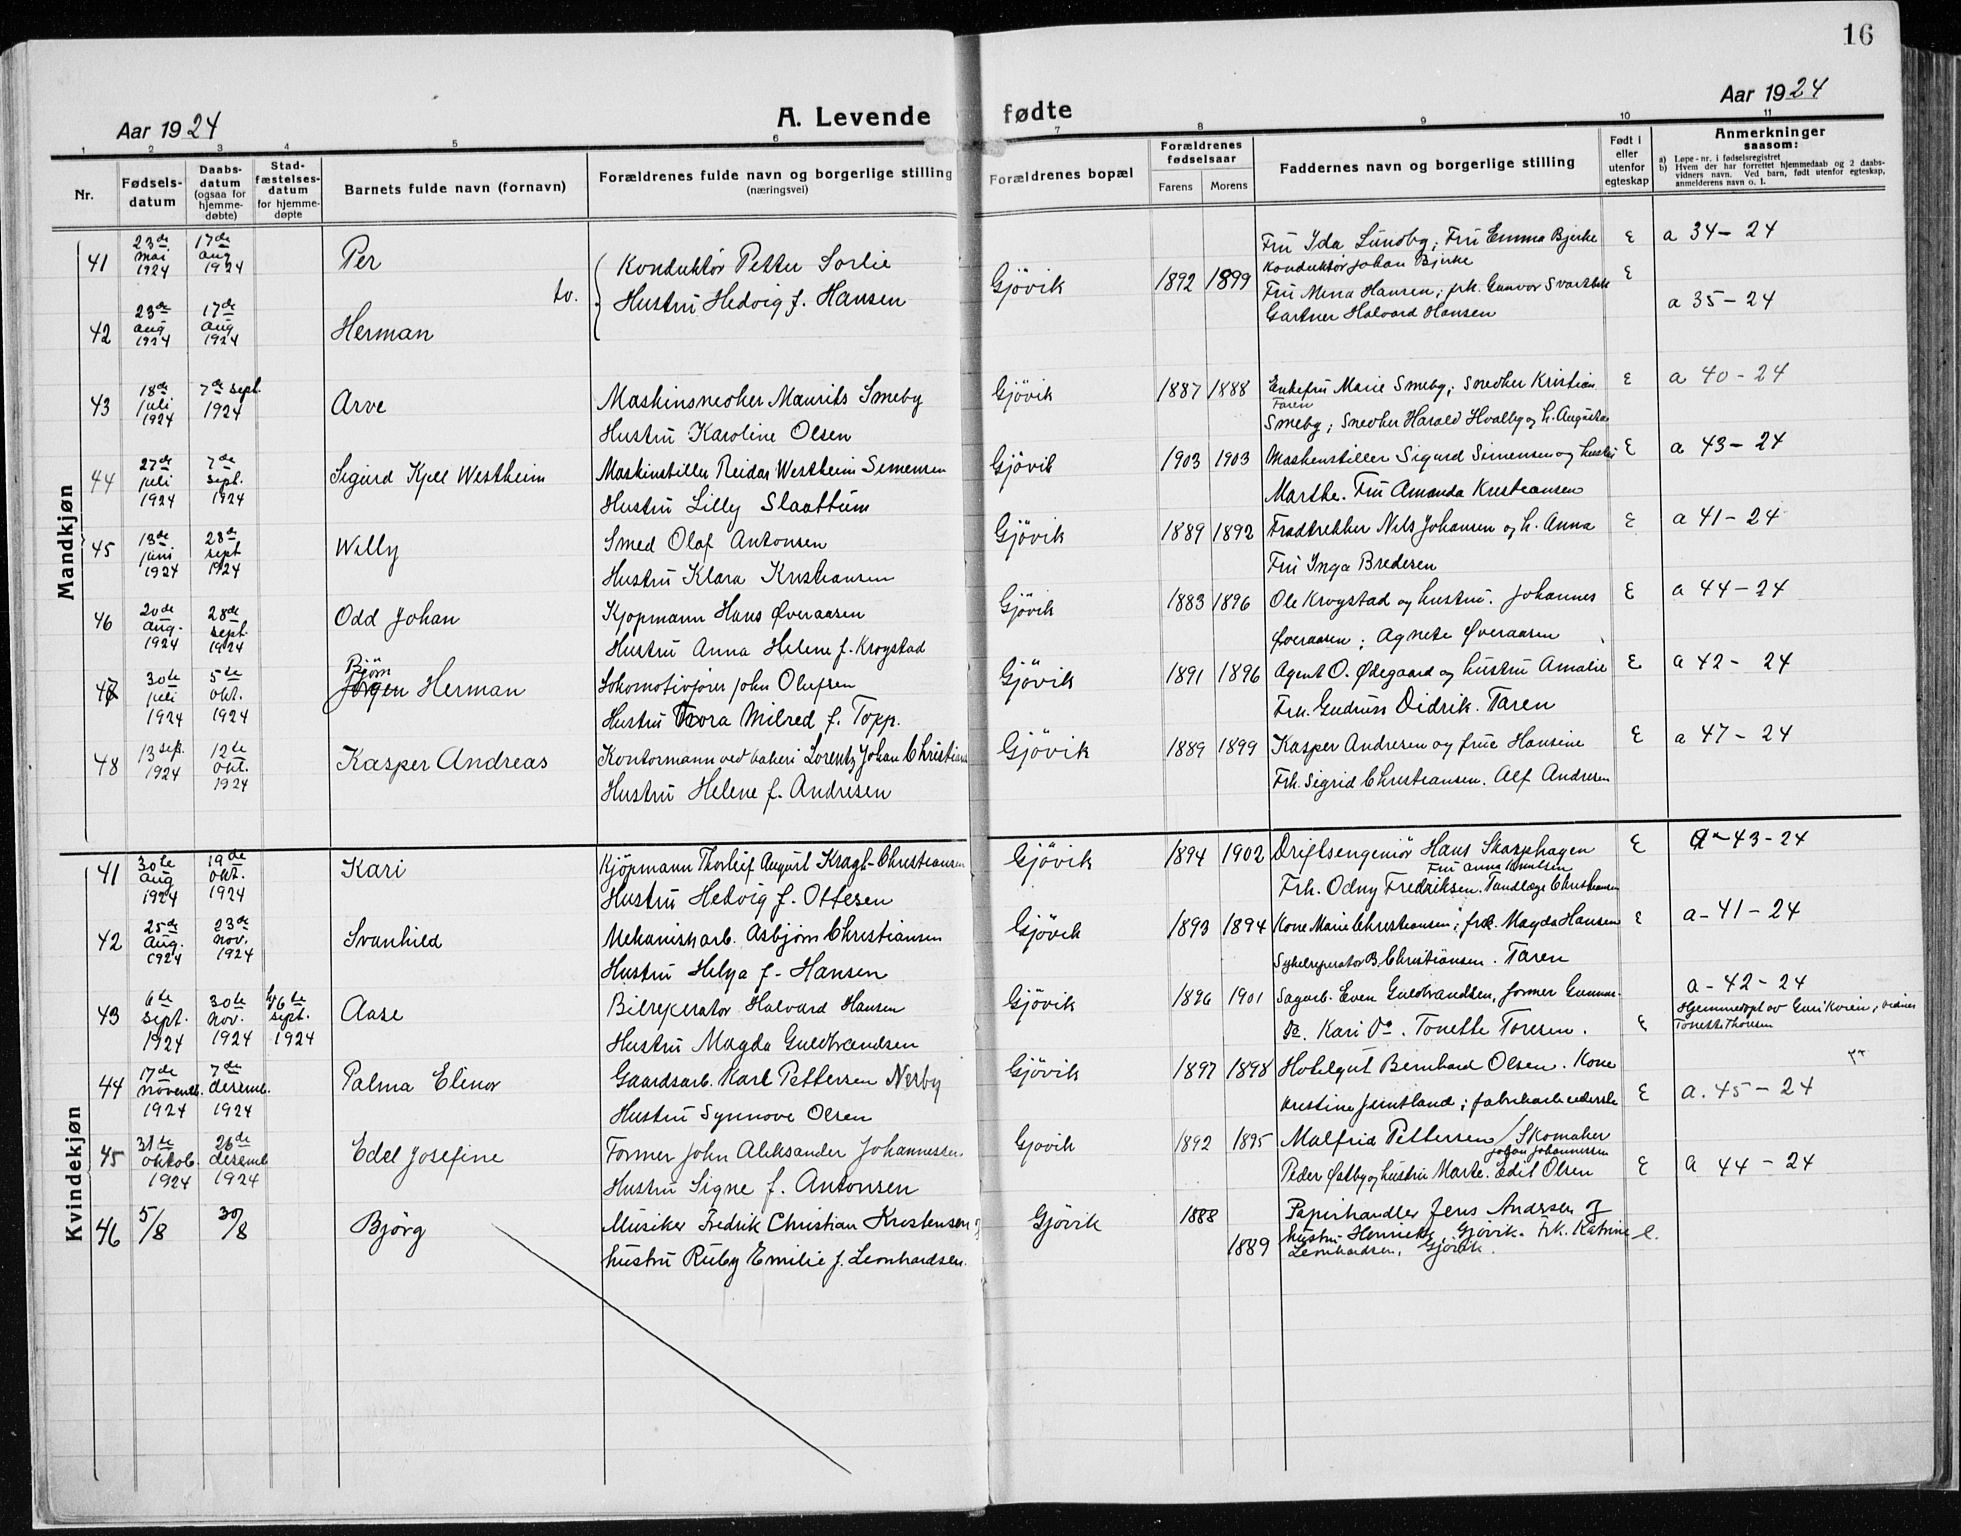 16
Aar 1924
A. Levende fødte
Aar 1924
1 2 3 4 5 6 7 8 9 10 11
Nr.
Fødsels-datum
Daabs-datum (ogsaa for hjemme-døbte)
Stad-fæstelses-datum for hjemme-døpte
Barnets fulde navn (fornavn)
Forældrenes fulde navn og borgerlige stilling (næringsvei)
Forældrenes bopæl
Forældrenes fødselsaar
Farens Morens
Faddernes navn og borgerlige stilling
Født i eller utenfor egteskap
Anmerkninger saasom:
a) Løpe-nr. i fødselsregistret
b) Hvem der har forrettet hjemmedaab og 2 daabs-vidners navn. Ved barn, født utenfor egteskap, anmelderens navn o. l.
Mandkjøn
41 23de mai 1924 17de aug 1924 Per
Konduktör Petter Sorlie
Hustru Hedvig f. Hansen
tv.
Gjövik 1892 1899
Fru Ida Lundby; Fru Emma Bjerke E a 34-24
Konduktör Johan Bjerke
42 23de aug 1924 17de aug 1924 Herman
Fru Mina Hansen; frk. Gunvor E
Gartner Halvard Hansen a 35-24
43 18de juli 1924 7de sept. 1924 Arve
Maskinsnedker Maurits Smeby
Hustru Karoline Olsen
Gjövik 1887 1888
Enkefru Marie Smeby; Snedker Kristian E a 40-24
Faren
Smeby; Snedker Harald Hvalby og h. Augusta
44 27de juli 1924 7de sept. 1924 Sigurd Kjell Westheim
Maskinstiller Reidar Westheim Simensen
Hustru Lilly Slaattum
Gjövik 1903 1903
Maskinstiller Sigurd Simensen og hustru E a 43-24
Marthe. Fru Amanda Kristiansen
45 13de juni 1924 28de sept 1924 Willy
Smed Olaf Antonsen
Hustru Klara Kristiansen
Gjövik 1889 1892
Traadtrekker Nils Johansen og h. Anna E a 41-24
Fru Inga Bredesen
46 20de aug. 1924 28de sept. 1924 Odd Johan
Kjopmann Hans Øveraasen
Hustru Anna Helene f. Krogstad
Gjövik 1883 1896
Ole Krogstad og hustru. Johannes E a 44-24
Øveraasen; Agnete Øveraasen
47 30te juli 1924 5te okt. 1924 Björn Jörgen Herman
Lokomotivförer John Olufsen
Hustru Thora Milred f. Topp.
Gjövik 1891 1896
Agent O. Ødegaard og hustru Amalie E a 42-24
Frk. Gudrun Didrik. Faren
48 13 sept. 1924 12te okt. 1924 Kasper Andreas
Kontormann ved bakeri Lorentz Johan Christians
Hustru Helene f. Andresen
Gjövik 1889 1899
Kasper Andresen og frue Hansine E a 47-24
Frk. Sigrid Christiansen. Alf Andresen
Kvindekjøn
41 30te aug 1924 19de okt. 1924 Kari
Kjöpmann Thorleif August Kragh-Christiansen
Hustru Hedvig f. Ottesen
Gjövik 1894 1902
Driftsengeniör Hans Skaaphagen E a-43-24
Fru Anna Knutsen
Frk. Odny Fredriksen. Tandlæge Christiansen
42 25de Aug. 1924 23de nov. 1924 Svanhild
Mekanisk arb. Asbjørn Christiansen
Hustru Helga f. Hansen
Gjövik 1893 1894
Kone Marie Christiansen; frk. Magda Hansen E a-41-24
Sykelreperatør B. Christiansen. Faren
43 6te sept. 1924 30te nov. 1924 6te sept. 1924 Aase
Bilreperatør Halvard Hansen
Hustru Magda Guldbrandsen
Gjövik 1896 1901
Sagarb. Even Guldbrandsen, former Gunnar a-42-24
Do. Kari Do. Tonette Toresen. E
Hjemmedöpt av Guri Kvien, vidner Tonette Thoresen
44 17de novemb. 1924 7de desemb. 1924 Palma Elinor
Gaardsarb. Karl Pettersen Nerby
Hustru Synnove Olsen
Gjövik 1897 1898
Hotelgut Bernhard Olsen. Kone
Kristine Jintland; fabrikarbeiderske E a. 45-24
45 31te oktob. 1924 26de desemb 1924 Edel Josefine
Former John Aleksander Johannessen
Hustru Signe f. Antonsen
Gjovik 1892 1895
Malfrid Pettersen / Skomaker
Johan Johannessen
Peder Østby og hustru Marte. Edit Olsen E a 44-24
46 5/8 30/8 Bjørg
Musiker Fredrik Christian Kristensen og
hustru Ruby Emilie f. Leonhardsen.
Gjövik 1888 1889
Papirhandler Jens Andersen og
hustru Henrikke, Gjövik. Frk. Katrine e.
Leonhardsen, Gjövik.